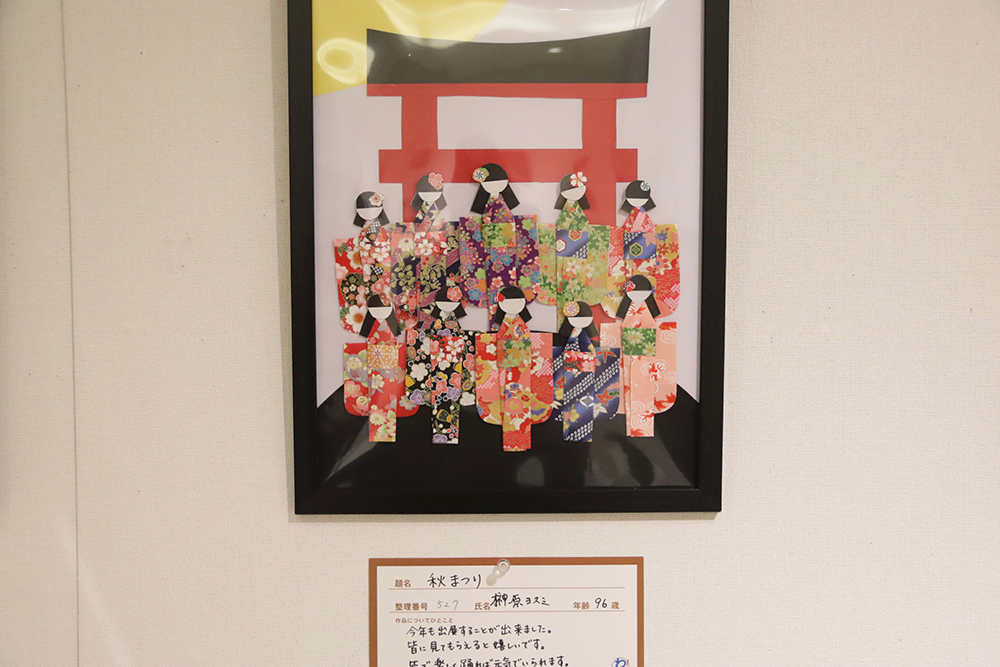 題名 秋まつり
整理番号 527 氏名 榊原ヨスミ 年齢 96 歳
作品についてひとこと
今年も出展することが出来ました。
皆に見てもらえると嬉しいです。
皆で楽しく踊れば元気でいられます。
わ